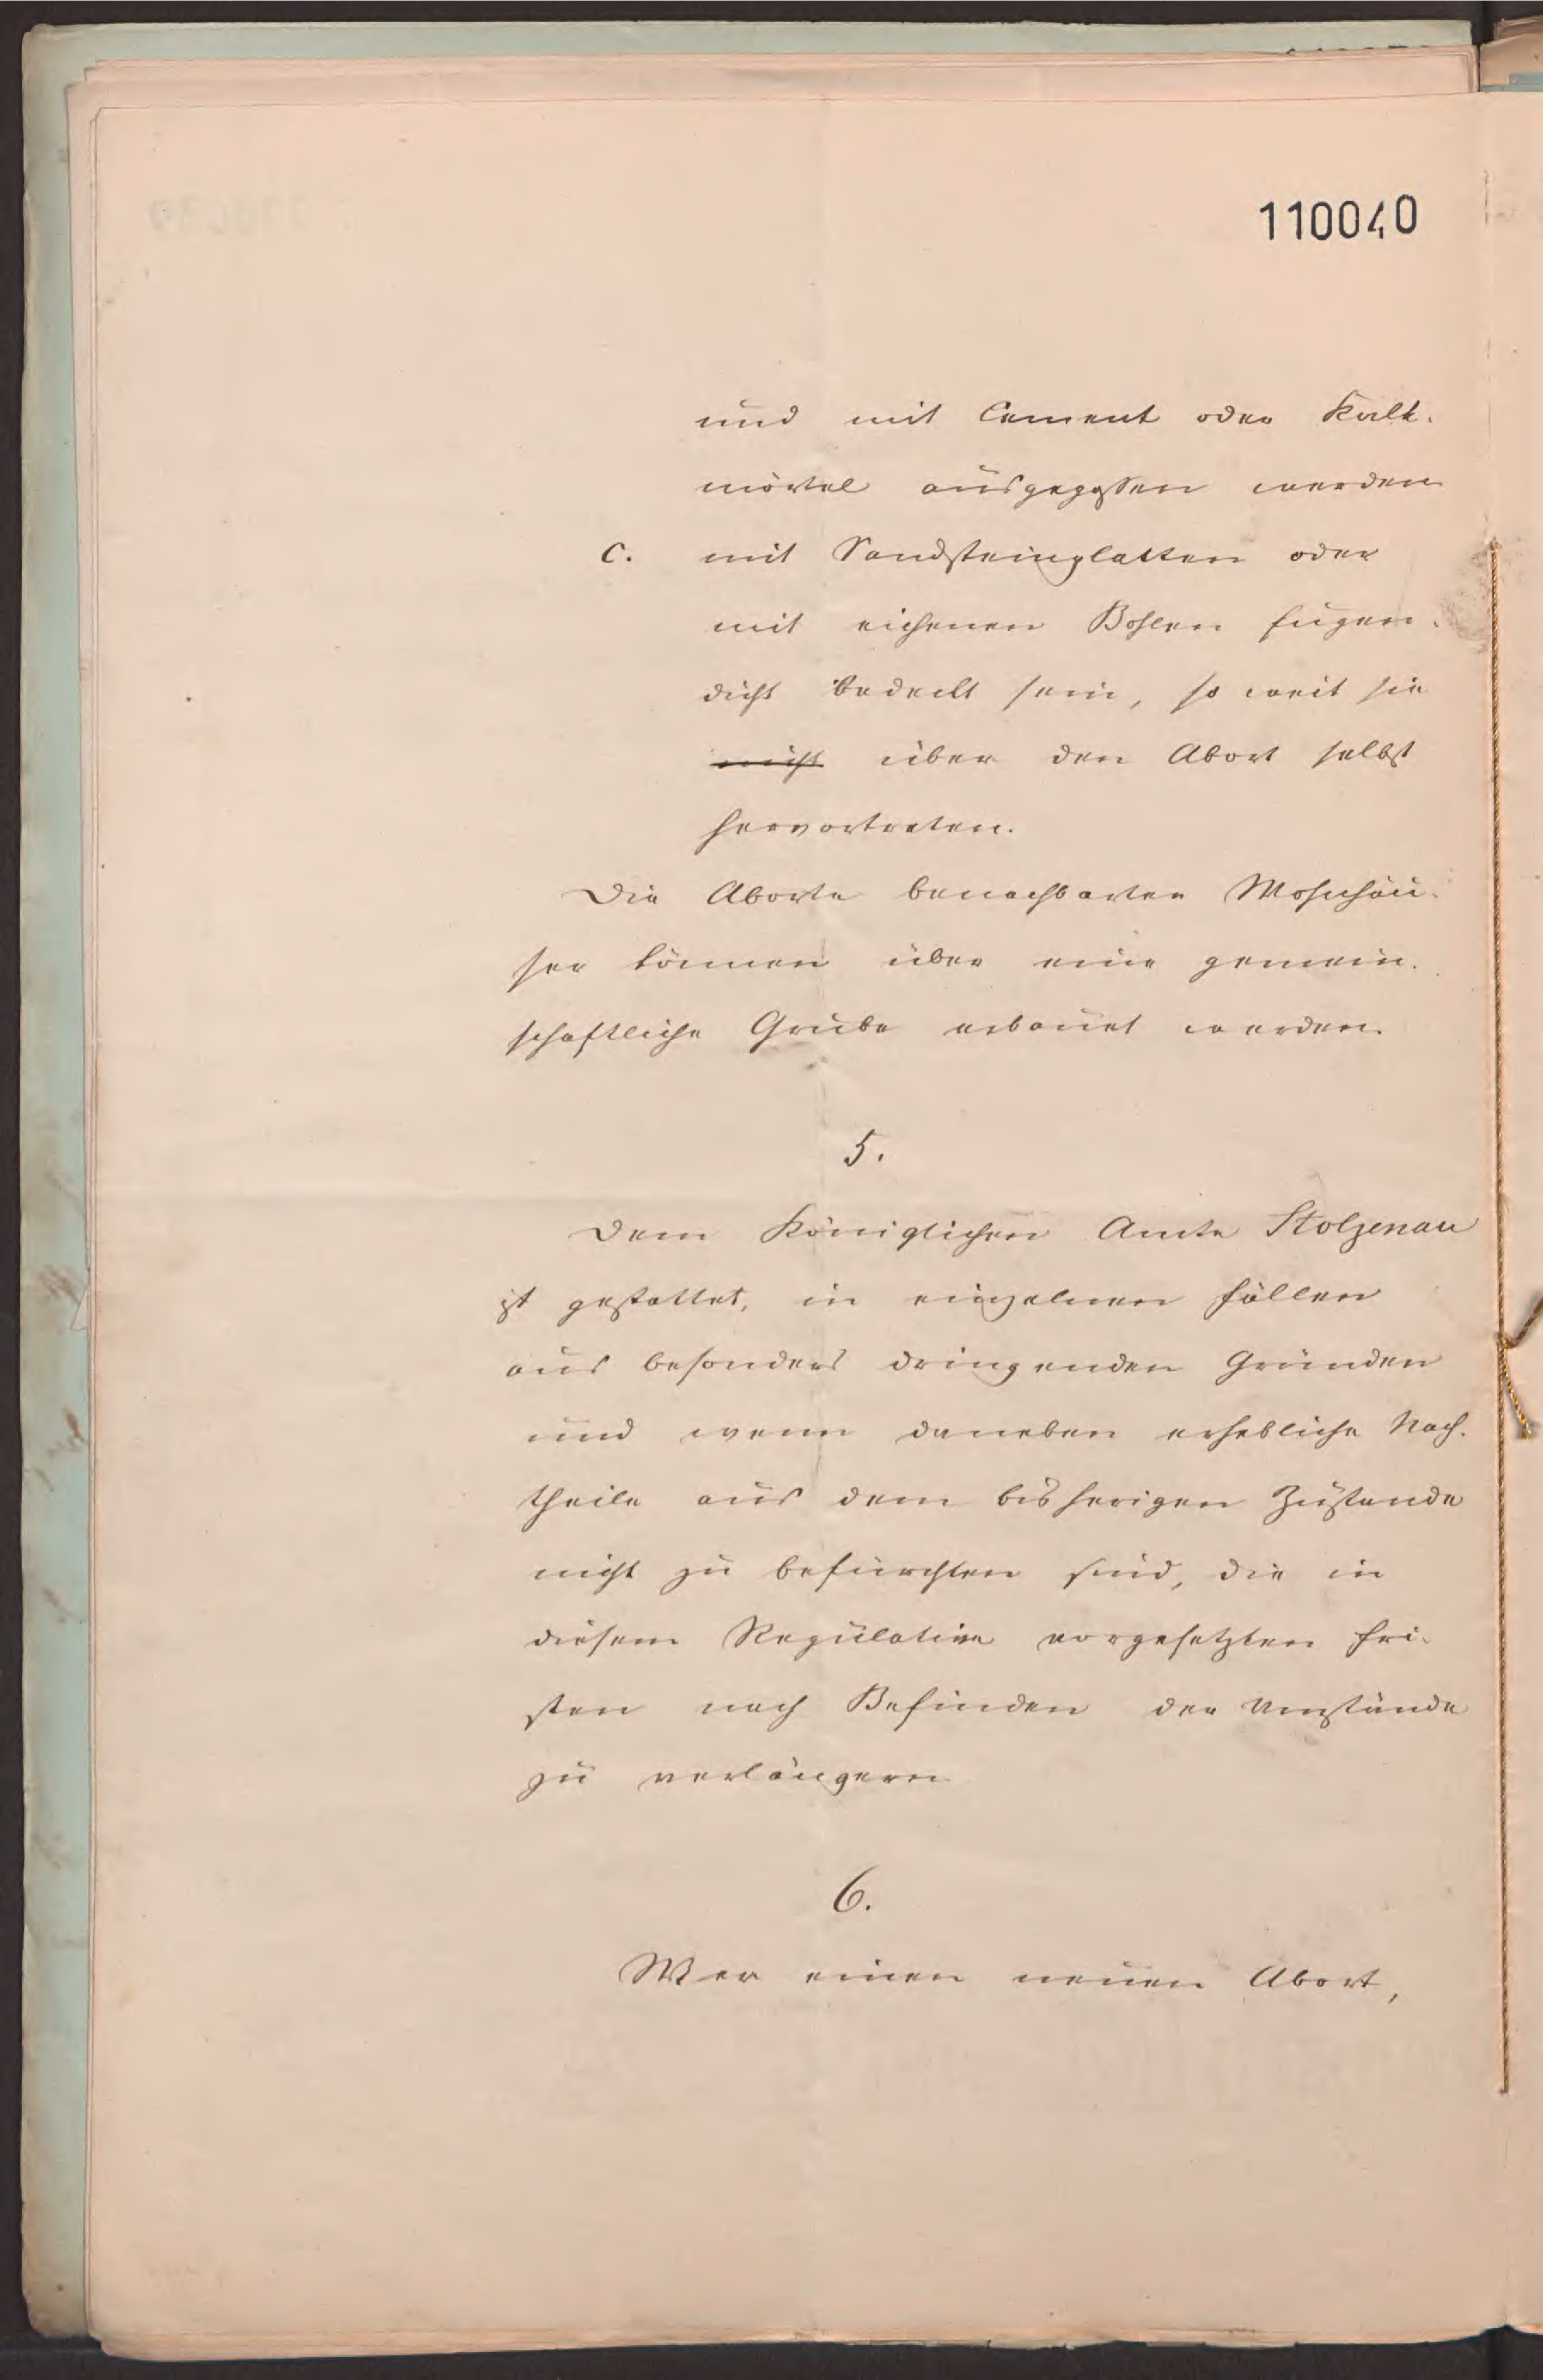 110040
und mit Cement oder Kalk-
mörtel ausgegossen werden
C. mit Sandsteinplatten oder
mit eichenen Bohlen fugen-
dicht bedeckt sein, so weit sie
nicht über den Abort selbst
hervortreten.
Die Aborte benachbarter Wohnhäu-
ser können über eine gemein-
schaftliche Grube erbauet werden.
5.
Dem Königlichen Amte Stolzenau
ist gestattet, in einzelnen Fällen
aus besonders dringenden Gründen
und wenn daneben erhebliche Nach-
theile aus dem bisherigen Zustande
nicht zu befürchten sind, die in
diesem Regulative vorgesetzten Fri-
sten nach Befinden der Umstände
zu verlängern
6.
Wer einen neuen Abort,